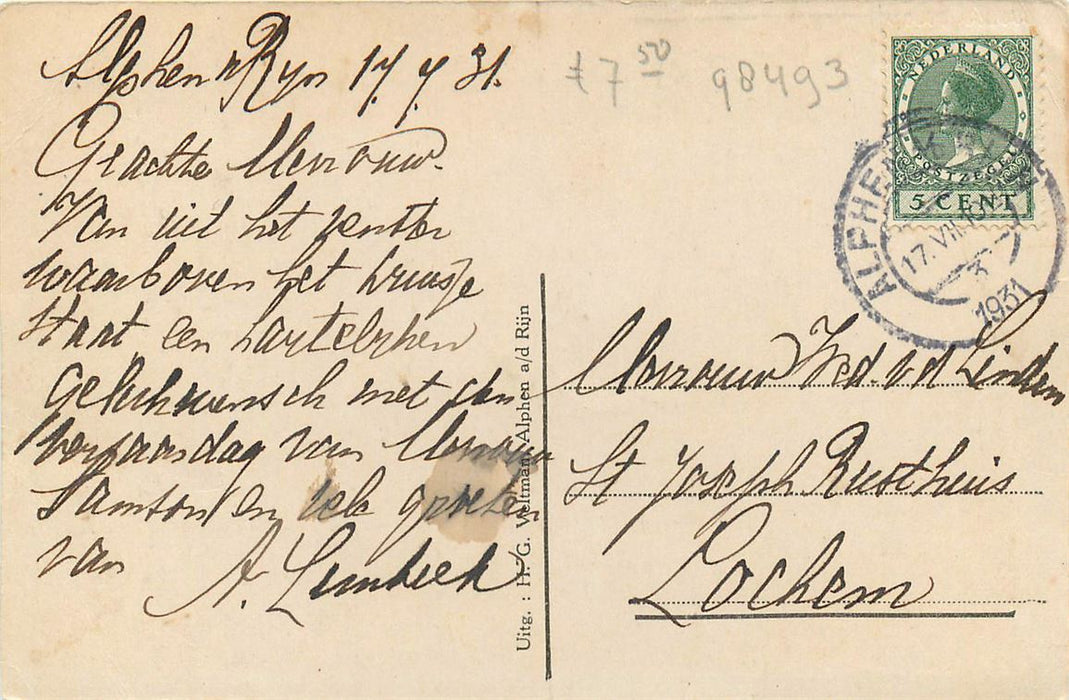 Alphen a/Rijn 17.7.31.
Geachte Mevrouw.
Van uit het venster
waarboven het kruisje
staat een hartelijken
gelukwensch met den
verjaardag van Mevrouw
Samson en vele groeten
van A. Lembeck
Uitg.: H. G. Veltman, Alphen a/d Rijn
f 7 50 98493
NEDERLAND
POSTZEGEL
5 CENT
ALPHEN
17.VII.
1931
Mevrouw Wed. v d Linden
St Joseph Rusthuis
Lochem